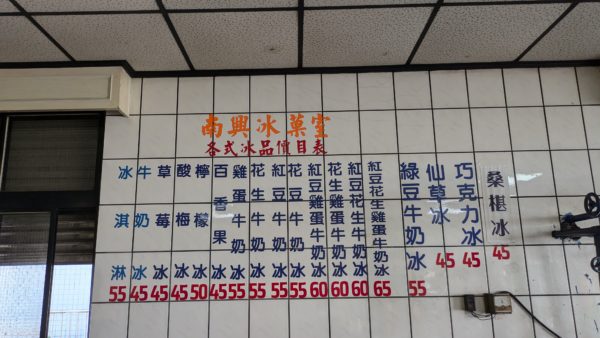 南興冰菓室
各式冰品價目表
冰淇淋 55
牛奶冰 45
草莓冰 45
酸梅冰 45
檸檬冰 50
百香果冰 45
雞蛋牛奶冰 55
花生牛奶冰 55
紅豆牛奶冰 55
花豆牛奶冰 55
紅豆雞蛋牛奶冰 60
花生雞蛋牛奶冰 60
紅豆花生牛奶冰 60
紅豆花生雞蛋牛奶冰 65
綠豆牛奶冰 55
仙草冰 45
巧克力冰 45
桑椹冰 45